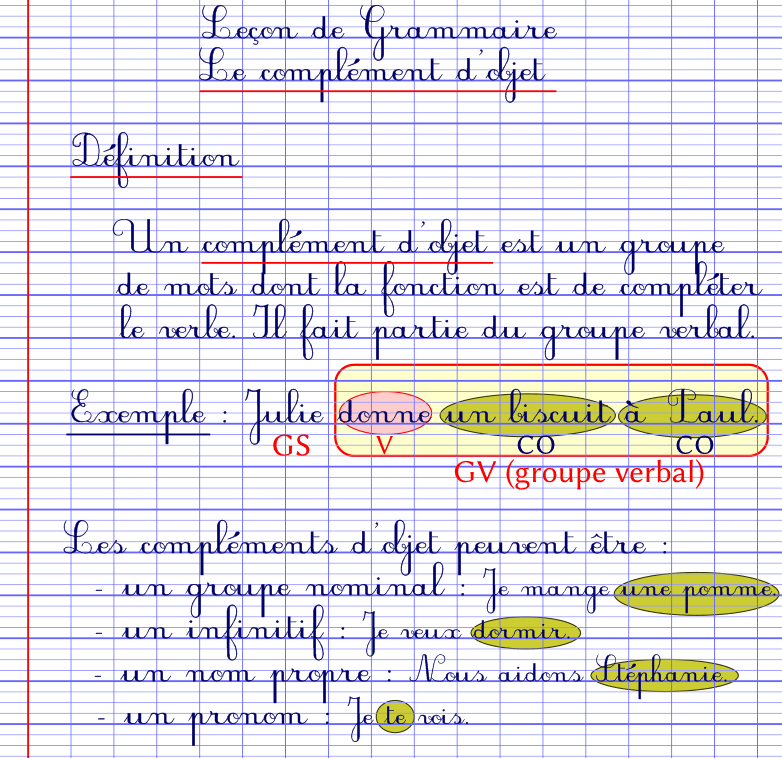 Leçon de Grammaire
Le complément d'objet
Définition
Un complément d'objet est un groupe
de mots dont la fonction est de compléter
le verbe. Il fait partie du groupe verbal.
Exemple : Julie donne un biscuit à Paul.
GS V CO CO
GV (groupe verbal)
Les compléments d'objet peuvent être :
- un groupe nominal : Je mange une pomme.
- un infinitif : Je veux dormir.
- un nom propre : Nous aidons Stéphanie.
- un pronom : Je te vois.